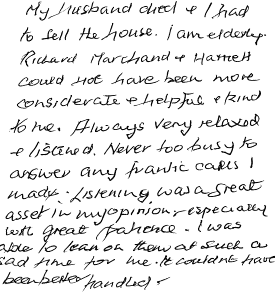 My husband died & I had
to sell the house. I am elderly.
Richard Marchand & Harriett
could not have been more
considerate & helpful & kind
to me. Always very relaxed
& listened. Never too busy to
answer any frantic calls I
made. Listening was a great
asset in my opinion, especially
with great patience. I was
able to lean on them at such a
sad time for me. It couldn't have
been better handled.